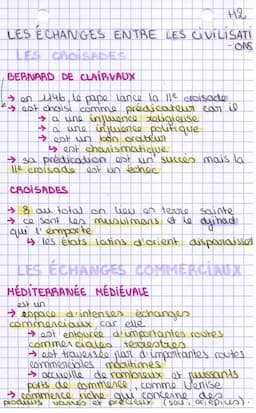 H2
LES ÉCHANGES ENTRE LES CIVILISATI
-ONS
LES CROISADES
BERNARD DE CLAIRVAUX
→ en 1146, le pape lance la IIe croisade
→ est choisi comme prédicateur car il
→ a une influence religieuse
→ a une influence politique
→ est un bon orateur
↳ est charismatique
→ sa prédication est un succès mais la
IIe croisade est un échec
CROISADES
→ 8 au total on lieu en terre sainte
→ ce sont les musulmans et le djihad
qui l'emporte
↳ les états latins d'orient disparaissent
LES ÉCHANGES COMMERCIAUX
MÉDITERRANÉE MÉDIÉVALE
est un
→ espace d'intenses échanges
commerciaux car elle
→ est entourée d'importantes routes
commerciales terrestres
→ est traversée par d'importantes routes
commerciales maritimes
→ accueille de nombreux et puissants
ports de commerce, comme Venise
→ commerce riche qui concerne des
produits variés et précieux (soie, épices).